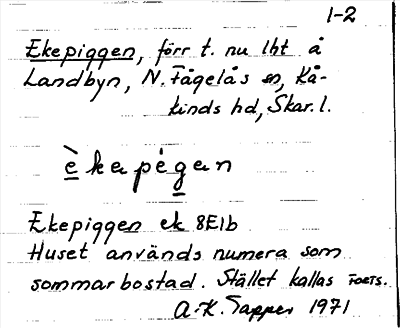 1-2
Ekepiggen, förr t. nu lht å
Landbyn, N. Fågelås sn, Kå-
kinds hd, Skar. l.
èkapégan
Ekepiggen ek 8E1b
Huset används numera som
sommarbostad. Stället kallas
A.-K. Tapper 1971